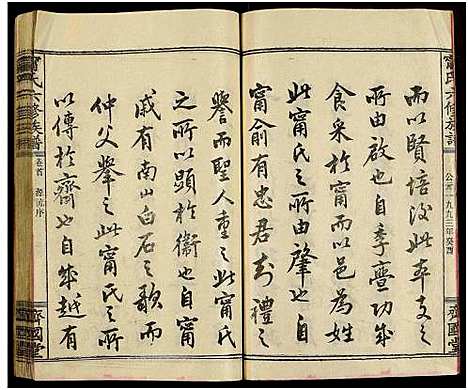 甯氏六修族譜
公元一九九三年癸酉
齊國堂
而以賢培後此本支之
所由啟也自季亹功成
食采於甯而以邑為姓
此甯氏之所由肇也
甯俞有忠君封禮之
譽而聖人重之此甯氏
之所以顯於衛也自甯
戚有南山白石之歌而
仲父舉之此甯氏之所
以傳於齊也自成越有
甯氏六修族譜
卷首
源流序
齊國堂